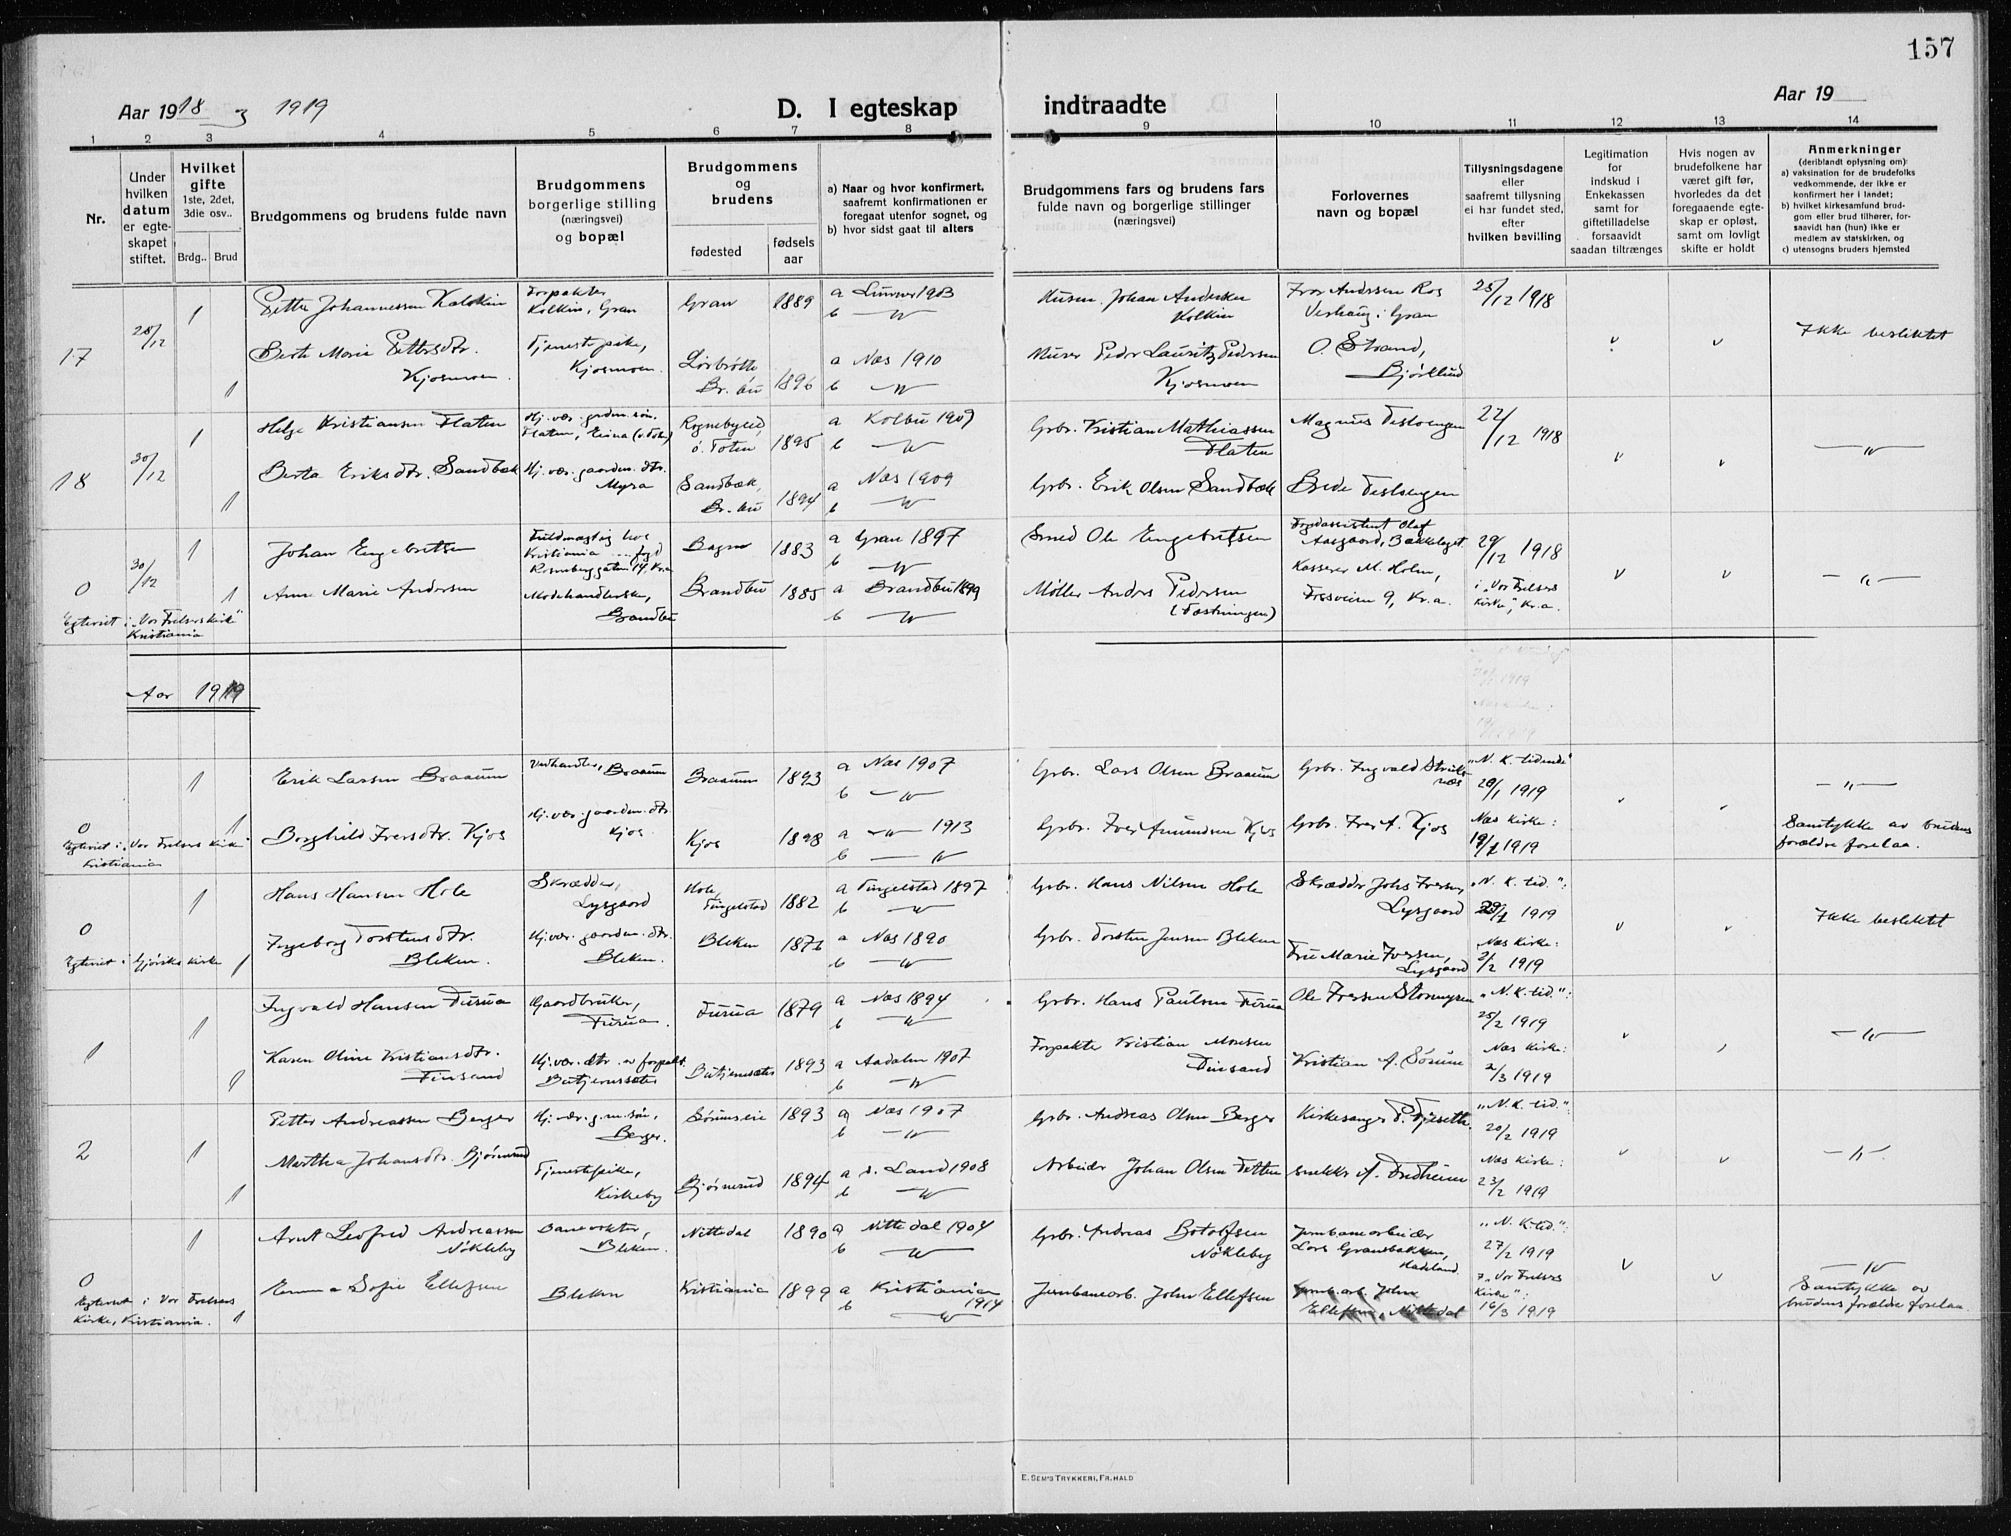 157
Aar 1918 og 1919
D. I egteskap
indtraadte
Aar 19
1 2 3 4 5 6 7 8 9 10 11 12 13 14
Nr.
Under hvilken datum er egteskapet stiftet.
Hvilket gifte 1ste, 2det, 3die osv..
Brdg.. Brud
Brudgommens og brudens fulde navn
Brudgommens borgerlige stilling (næringsvei) og bopæl
Brudgommens og brudens
fødested
fødsels aar
a) Naar og hvor konfirmert, saafremt konfirmationen er foregaat utenfor sognet, og
b) hvor sidst gaat til alters
Brudgommens fars og brudens fars fulde navn og borgerlige stillinger (næringsvei)
Forlovernes navn og bopæl
Tillysningsdagene eller saafremt tillysning ei har fundet sted, efter hvilken bevilling
Legitimation for indskud i Enkekassen samt for giftetilladelse forsaavidt saadan tiltrænges
Hvis nogen av brudefolkene har været gift før, hvorledes da det foregaaende egteskap er opløst, samt om lovligt skifte er holdt
Anmerkninger
(deriblandt oplysning om):
a) vaksination for de brudefolks vedkommende, der ikke er konfirmert her i landet;
b) hvilket kirkesamfund brudgom eller brud tilhører, forsaavidt han (hun) ikke er medlem av statskirken, og
c) utensogns bruders hjemsted
17 28/12 1 Petter Johannessen Kolskin Forpakter Kolkin, Gran Gran 1889 a Lunner 1903 b —"—
Johan Andersen Kolkin Iver Anderssen Ros 25/12 1918
1 Berte Marie Pettersdtr. Kjosmoen Tjenestepike, Kjosmoen 1896 a Næs 1910 b —"—
Murer Peder Lauritz Pedersen Kjosmoen O. Strand, Bjørklund Ikke besliktet
18 30/12 1 Helge Kristiansen Flaten Hj. vær. grdm. søn. Flaten, Eina ø. Toten 1895 a Kolbu 1909 b —"—
Grbr. Kristian Mathiassen Flaten Magnus 22/12 1918 —"—
1 Berta Eriksdtr. Sandbæk Hj. vær. gaardm. dtr. Myra Sandbæk, Br. bu 1894 a Næs 1909 b —"—
Grbr. Erik Olsen Sandbæk Brede
0 30/12 1 Johan Engebretsen Fuldmægtig hos Kristiania fogd Rosenborggaten 14, Kr.a Bagn 1883 a Gran 1897 b —"—
Smed Ole Engebretsen Fogdassistent Olaf Aasgaard, Bækkelaget 29/12 1918
1 Anne Marie Andersen Modehandlerske, Brandbu Brandbu 1885 a Brandbu 1899 b —"—
Møller Anders Pedersen (Fæstningen) Kasserer M. Holm, 9, Kr.a. i „Vor Frelsers kirke", Kr.a. —"—
Egteviet i „Vor Frelsers kirke" Kristiania
Aar 1919
1 Erik Larsen Braaum Vedhandler, Braaum Braaum 1893 a Næs 1907 b —"—
Grbr. Lars Olsen Braaum Grbr. Ingvald „N. K. tidende" 20/1 1919 —"—
0 1 Borghild Iversdtr. Kjos Hj. vær. gaardm. dtr. Kjos Kjos 1898 a —"— 1913 b —"—
Grbr. Iver Amundsen Kjos Grbr. Iver A. Kjos Næs kirke: 19/1 1919 Samtykke av brudens forældre forelaa.
Egteviet i „Vor Frelsers kirke" Kristiania
1 Hans Hansen Hole Skrædder, Lysgaard Hole, Tingelstad 1882 a Tingelstad 1897 b —"—
Grbr. Hans Nilsen Hole Skrædder Johs Iversen, Lysgaard „N. K. tid.": 29/1 1919 Ikke besliktet
0 1 Ingeborg Torstensdtr. Bleken Hj. vær. gaardm. dtr. Bleken. Bleken 1876 a Næs 1890 b —"—
Grbr. Torsten Jensen Bleken Fru Marie Iversen, Lysgaard Næs kirke: 2/2 1919
Egteviet i Gjøviks kirke
1 Ingvald Hansen Furua Gaardbruker, Furua. Furua 1879 a Næs 1894 b —"—
Grbr. Hans Paulsen Furua Ole Iversen „N. K. tid.": 25/2 1919 —"—
1 1 Karen Oline Kristiansdtr. Finsand Hj. vær. dtr. av forpakt. 1893 a Aadalen 1907 b —"—
Forpakter Kristian Monsen Finsand Kristian A. Sørum Næs kirke: 2/3 1919
2 1 Petter Andreassen Berger Hj. vær. g.m. søn, Berger. Sørumseie 1893 a Næs 1907 b —"—
Grbr. Andreas Olsen Berger Kirkesanger P. „N. K. tid.": 20/2 1919 —"—
1 Martha Johansdtr. Bjørnerud Tjenestepike, Kirkeby Bjørnerud 1894 a s. Land 1908 b —"—
Arbeider Johan Olsen snekker A. Fredheim Næs kirke: 23/2 1919
1 Arnt Leofred Andreassen Nökleby Banevokter, Bleken. Nittedal 1890 a Nittedal 1904 b —"—
Grbr. Andreas Botolfsen Nökleby Jernbanearbeider Lars Granebakken, Hadeland. „N. K. tid.": 27/2 1919 —"—
0 1 Emma Sofie Ellefsen Bleken Kristiania 1899 a Kristiania 1914 b —"—
Jernbanearb. John Ellefsen Jernb. arb. John Ellefsen, Nittedal „Vor Frelsers Kirke": 16/3 1919 Samtykke av brudens forældre forelaa
Egteviet i Vor Frelsers Kirke, Kristiania.
E. SEM'S TRYKKERI, FR. HALD